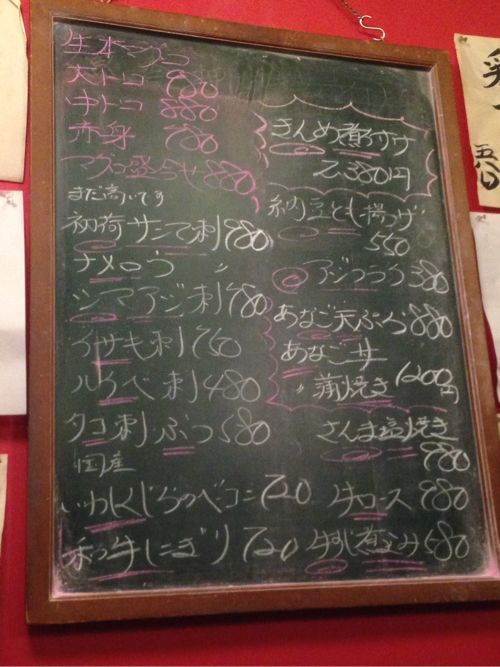 生本マグロ
大トロ 980
中トロ 880
赤身 780
マグロ盛合せ 880
まだ高いです
初荷 サンマ刺 980
ナメロウ 〃
シマアジ刺 980
イサキ刺 760
ルイベ刺 480
タコ刺 ぶつ 580
国産
いわしくじらのベーコン 720
和牛にぎり 720
きんめ煮
2,380円
納豆
550
アジフライ 380
あなご天ぷら 880
あなご
蒲焼き 1200円
さんま塩焼き
980
牛ロース 980
牛すじ煮込み 580
五八〇